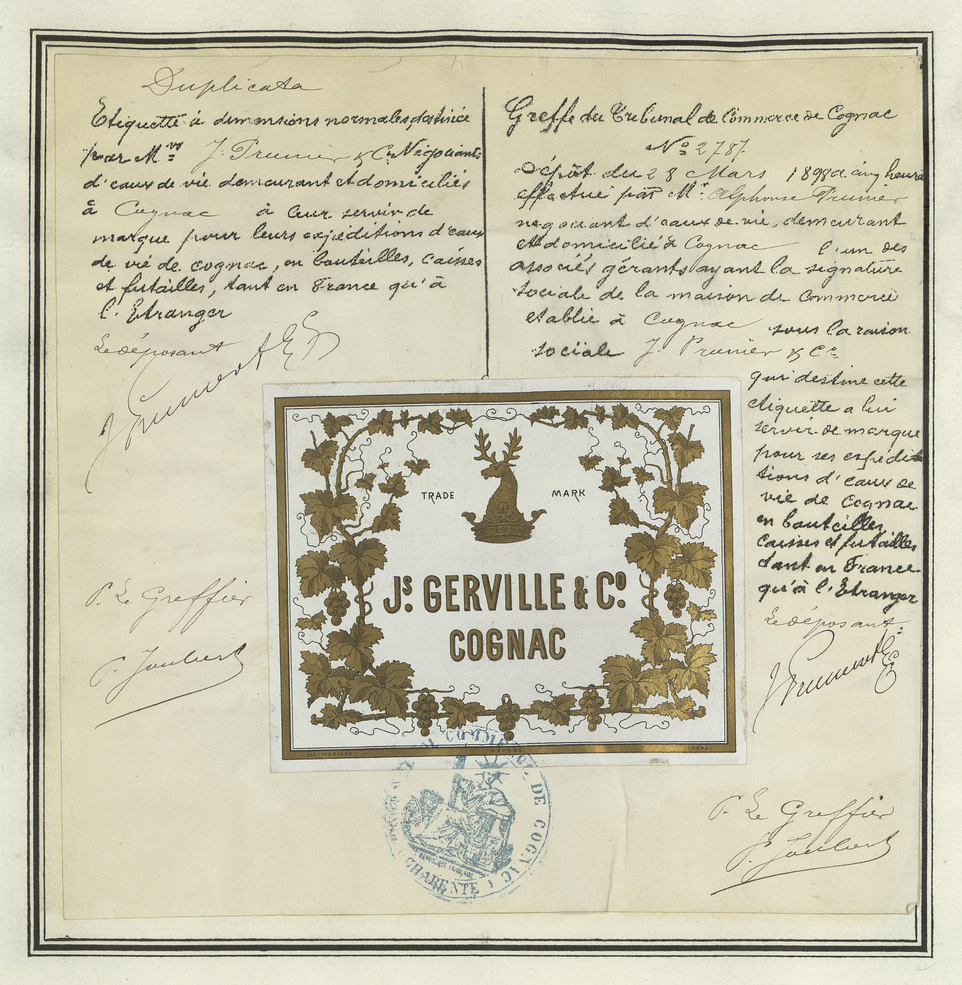 Duplicata
Etiquette à dimensions normales, destinée
par Mrs J. Prunier & Co Négociants
d'eaux de vie demeurant et domiciliés
à Cognac à leur servir de
marque pour leurs expéditions d'eaux
de vie de cognac, en bouteilles, caisses
et futailles, tant en France qu'à
l'Etranger
Le déposant
J Prunier & Co
P. Le Greffier
P. Joubert
Greffe du Tribunal de Commerce de Cognac
No 2787.
Dépôt du 28 Mars 1898 à cinq heures
effectué par Mr. Alphonse Prunier
negociant d'eaux de vie, demeurant
et domicilié à Cognac l'un des
associés gérants ayant la signature
sociale de la maison de commerce
etablie à Cognac sous la raison
sociale J. Prunier & Co
qui destine cette
etiquette a lui
servir de marque
pour ses expédi-
tions d'eaux de
vie de Cognac
en bouteilles,
caisses et futailles
tant en France
qu'à l'Etranger
Le déposant
J Prunier & Co
P. Le Greffier
P. Joubert
TRADE MARK
Js. GERVILLE & Co.
COGNAC
DE COMMERCE DE COGNAC
CHARENTE